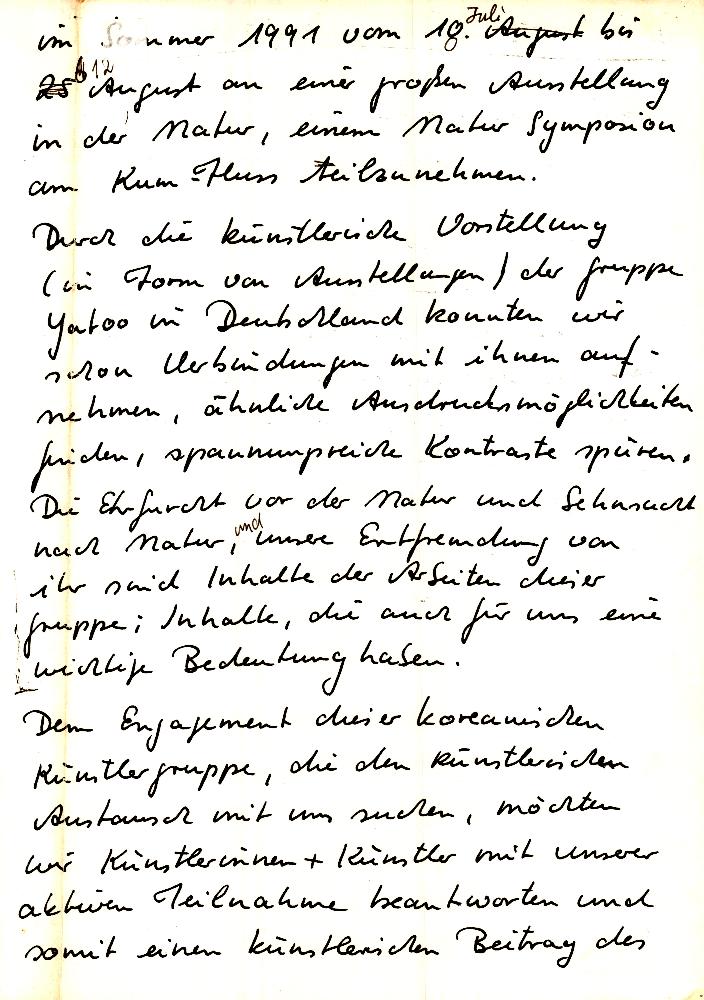 im Sommer 1991 vom 18. Juli August bis
25 12 August an einer großen Ausstellung
in der Natur, einem Natur Symposion
am Kum-Fluss teilzunehmen.
Durch die künstlerische Vorstellung
(in Form von Ausstellungen) der Gruppe
Yatoo in Deutschland konnten wir
schon Verbindungen mit ihnen auf-
nehmen, ähnliche Ausdrucksmöglichkeiten
finden, spannungsreiche Kontraste spüren.
Die Ehrfurcht vor der Natur und Sehnsucht
nach Natur, und unsere Entfremdung von
ihr sind Inhalte der Arbeiten dieser
Gruppe; Inhalte, die auch für uns eine
wichtige Bedeutung haben.
Dem Engagement dieser koreanischen
Künstlergruppe, die den künstlerischen
Austausch mit uns suchen, möchten
wir Künstlerinnen + Künstler mit unserer
aktiven Teilnahme beantworten und
somit einen künstlerischen Beitrag des